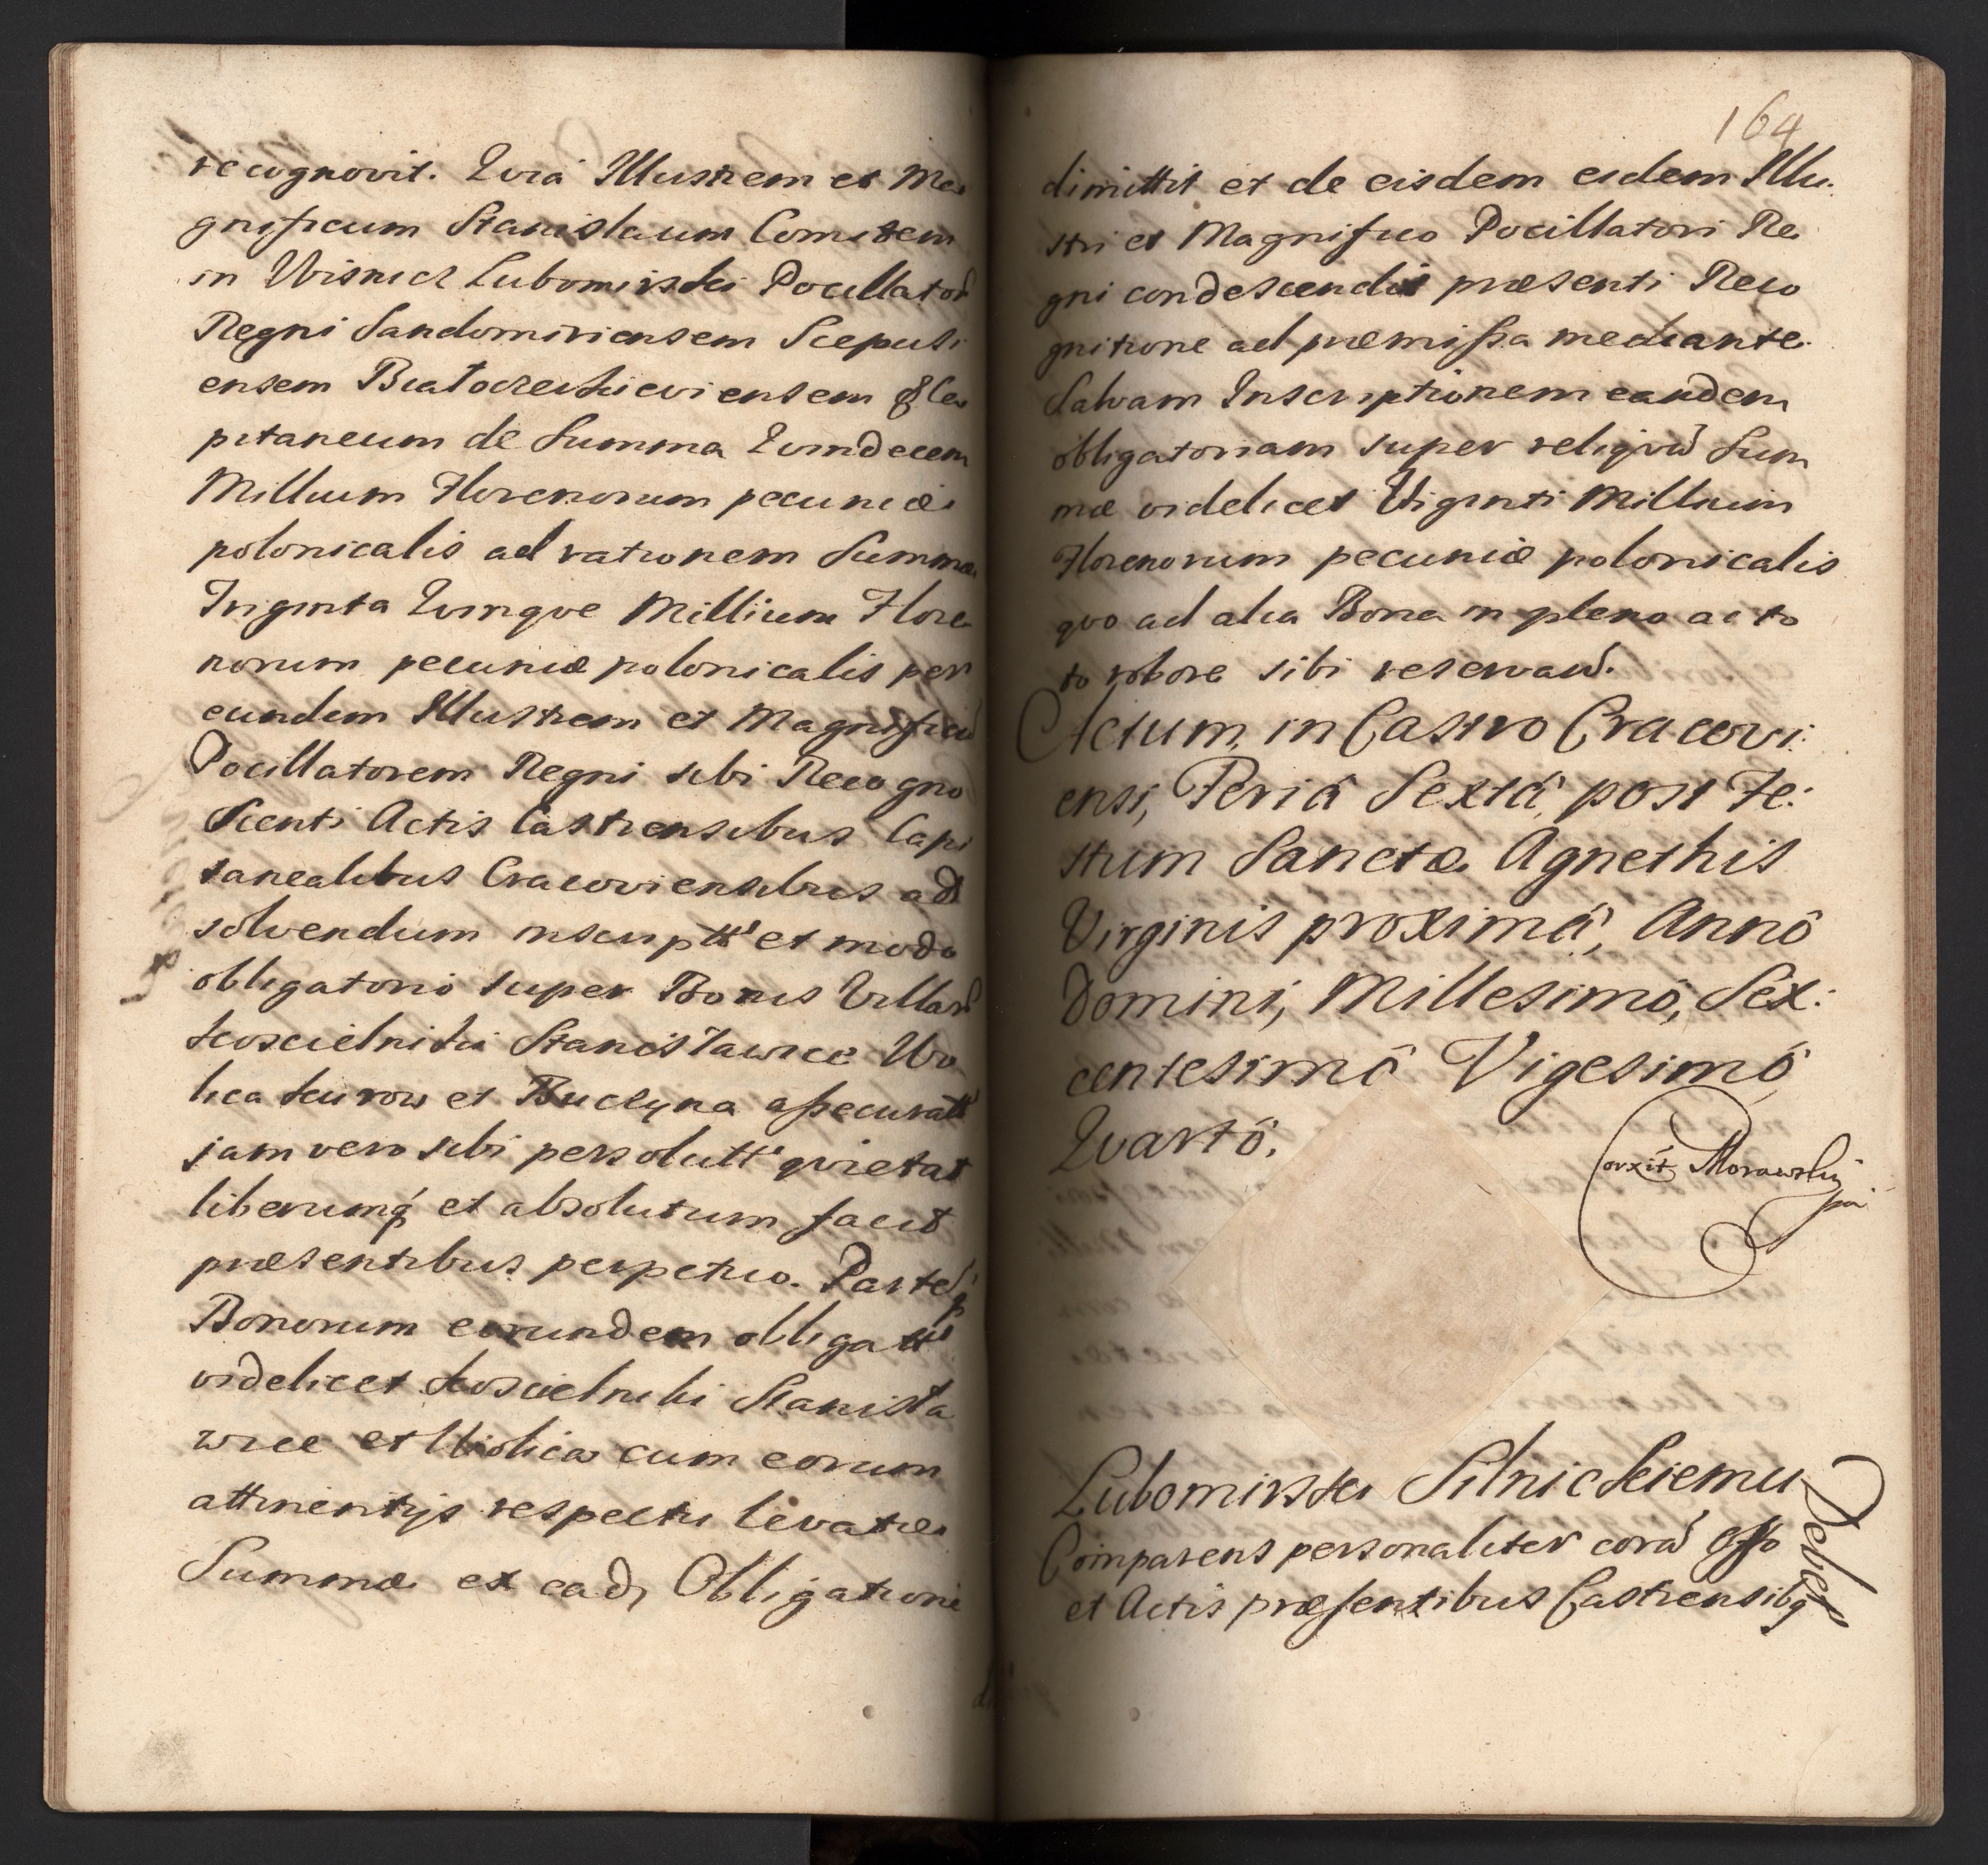 recognovit. Quia Illustrem et Ma
gnificum Stanislaum Comitem
in Wisnicz Lubomirski Pocillator
Regni Sandomiriensem Scepusi
ensem Białocerkieviensem &c Ca
pitaneum de Summa Quindecem
Millium Florenorum pecuniæ
polonicalis ad rationem Summæ
Triginta Quinqve Millium Flore
norum pecuniæ polonicalis per
eundem Illustrem et Magnificũ
Pocillatorem Regni sibi Recogno
scenti Actis Castrensibus Capi
tanealibus Cracoviensibus ad
solvendum inscriptt et modo
obligatorio super Bonis Villarũ
Koscielniki Stanisławice Wo
lica Kurow et Buczyna assecuratt
jam vero sibi persolutt qvietat
liberumq́ et absolutum facit
præsentibus perpetuo. Partesq́
Bonorum eorundem obligatt
videlicet Koscielniki Stanisła
wice et Wolica cum eorum
attinentijs respectu levatæ
Summæ ex ead, Obligatione
164
dimittit et de eisdem eidem Illu:
stri et Magnifico Pocillatori Re
gni condescendit præsenti Reco
gnitione ad præmissa mediante.
Salvam Inscriptionem eandem
obligatoriam super reliqvũ Sum
mæ videlicet Viginti Millium
Florenorum pecuniæ polonicalis
qvo ad alia Bona in pleno ac to
to robore sibi reservań.
Actum, in Castro Cracovi:
ensi, Feriâ Sextâ, post Fe:
stum Sanctæ Agnethis
Virginis proximâ, Annô
Domini, Millesimô, Sex:
centesimô Vigesimô
Qvartô.
Corxit Morawsky
Lubomirski Silnickiemu
Debet
Comparens personaliter corã Offo
et Actis præsentibus Castrensibq